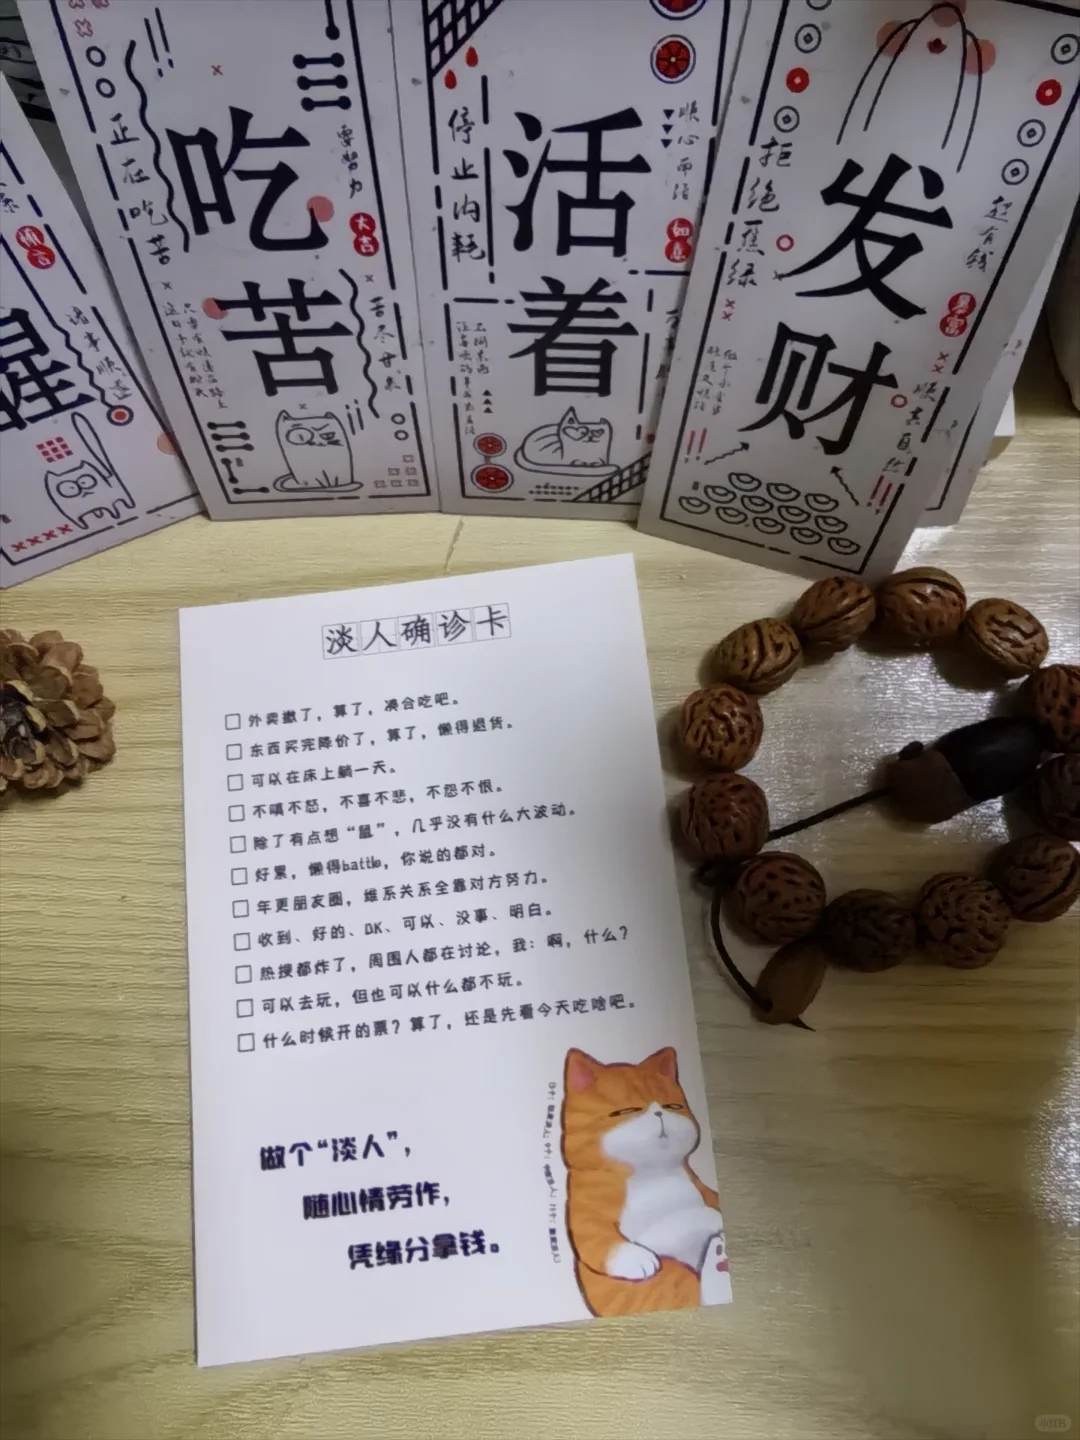 正在吃苦
吃苦
要努力
大吉
苦尽甘来
停止内耗
活着
顺心而活
如意
拒绝焦绿
发财
超有钱
暴富
顺其自然
诸事顺遂
醒
淡人确诊卡
□ 外卖撒了，算了，凑合吃吧。
□ 东西买完降价了，算了，懒得退货。
□ 可以在床上躺一天。
□ 不嗔不怒，不喜不悲，不怨不恨。
□ 除了有点想“鼠”，几乎没有什么大波动。
□ 好累，懒得battle，你说的都对。
□ 年更朋友圈，维系关系全靠对方努力。
□ 收到、好的、OK、可以、没事、明白。
□ 热搜都炸了，周围人都在讨论，我：啊，什么？
□ 可以去玩，但也可以什么都不玩。
□ 什么时候开的票？算了，还是先看今天吃啥吧。
做个“淡人”，
随心情劳作，
凭缘分拿钱。